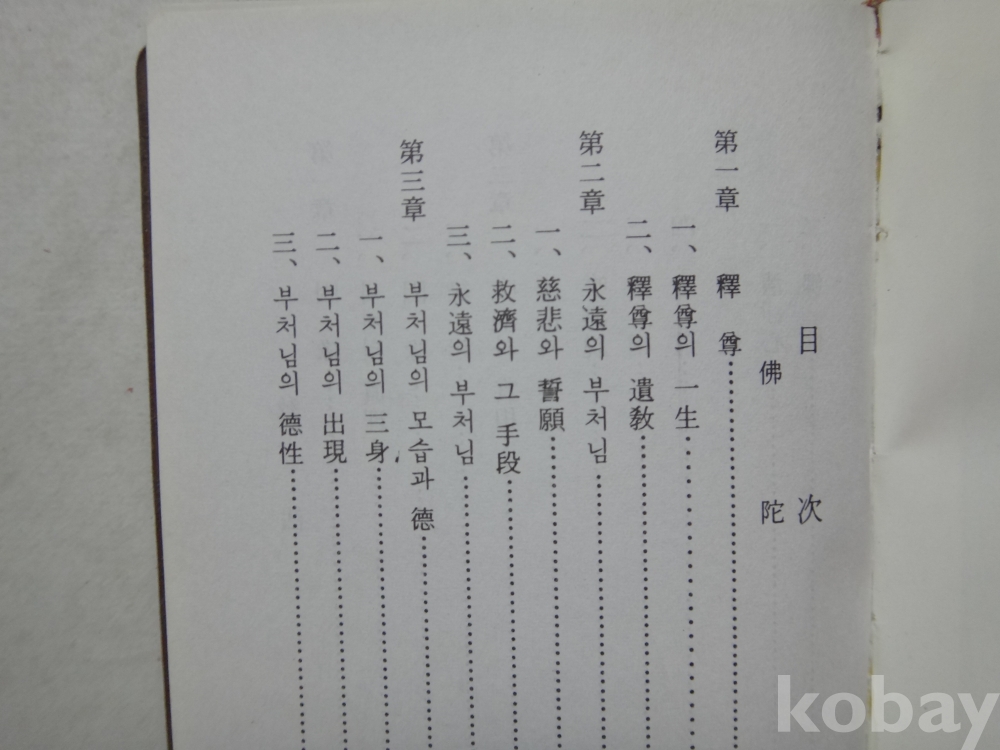 目次
佛陀
第一章 釋尊
一、釋尊의 一生
二、釋尊의 遺敎
第二章 永遠의 부처님
一、慈悲와 誓願
二、救濟와 그 手段
三、永遠의 부처님
第三章 부처님의 모습과 德
一、부처님의 三身
二、부처님의 出現
三、부처님의 德性
kobay